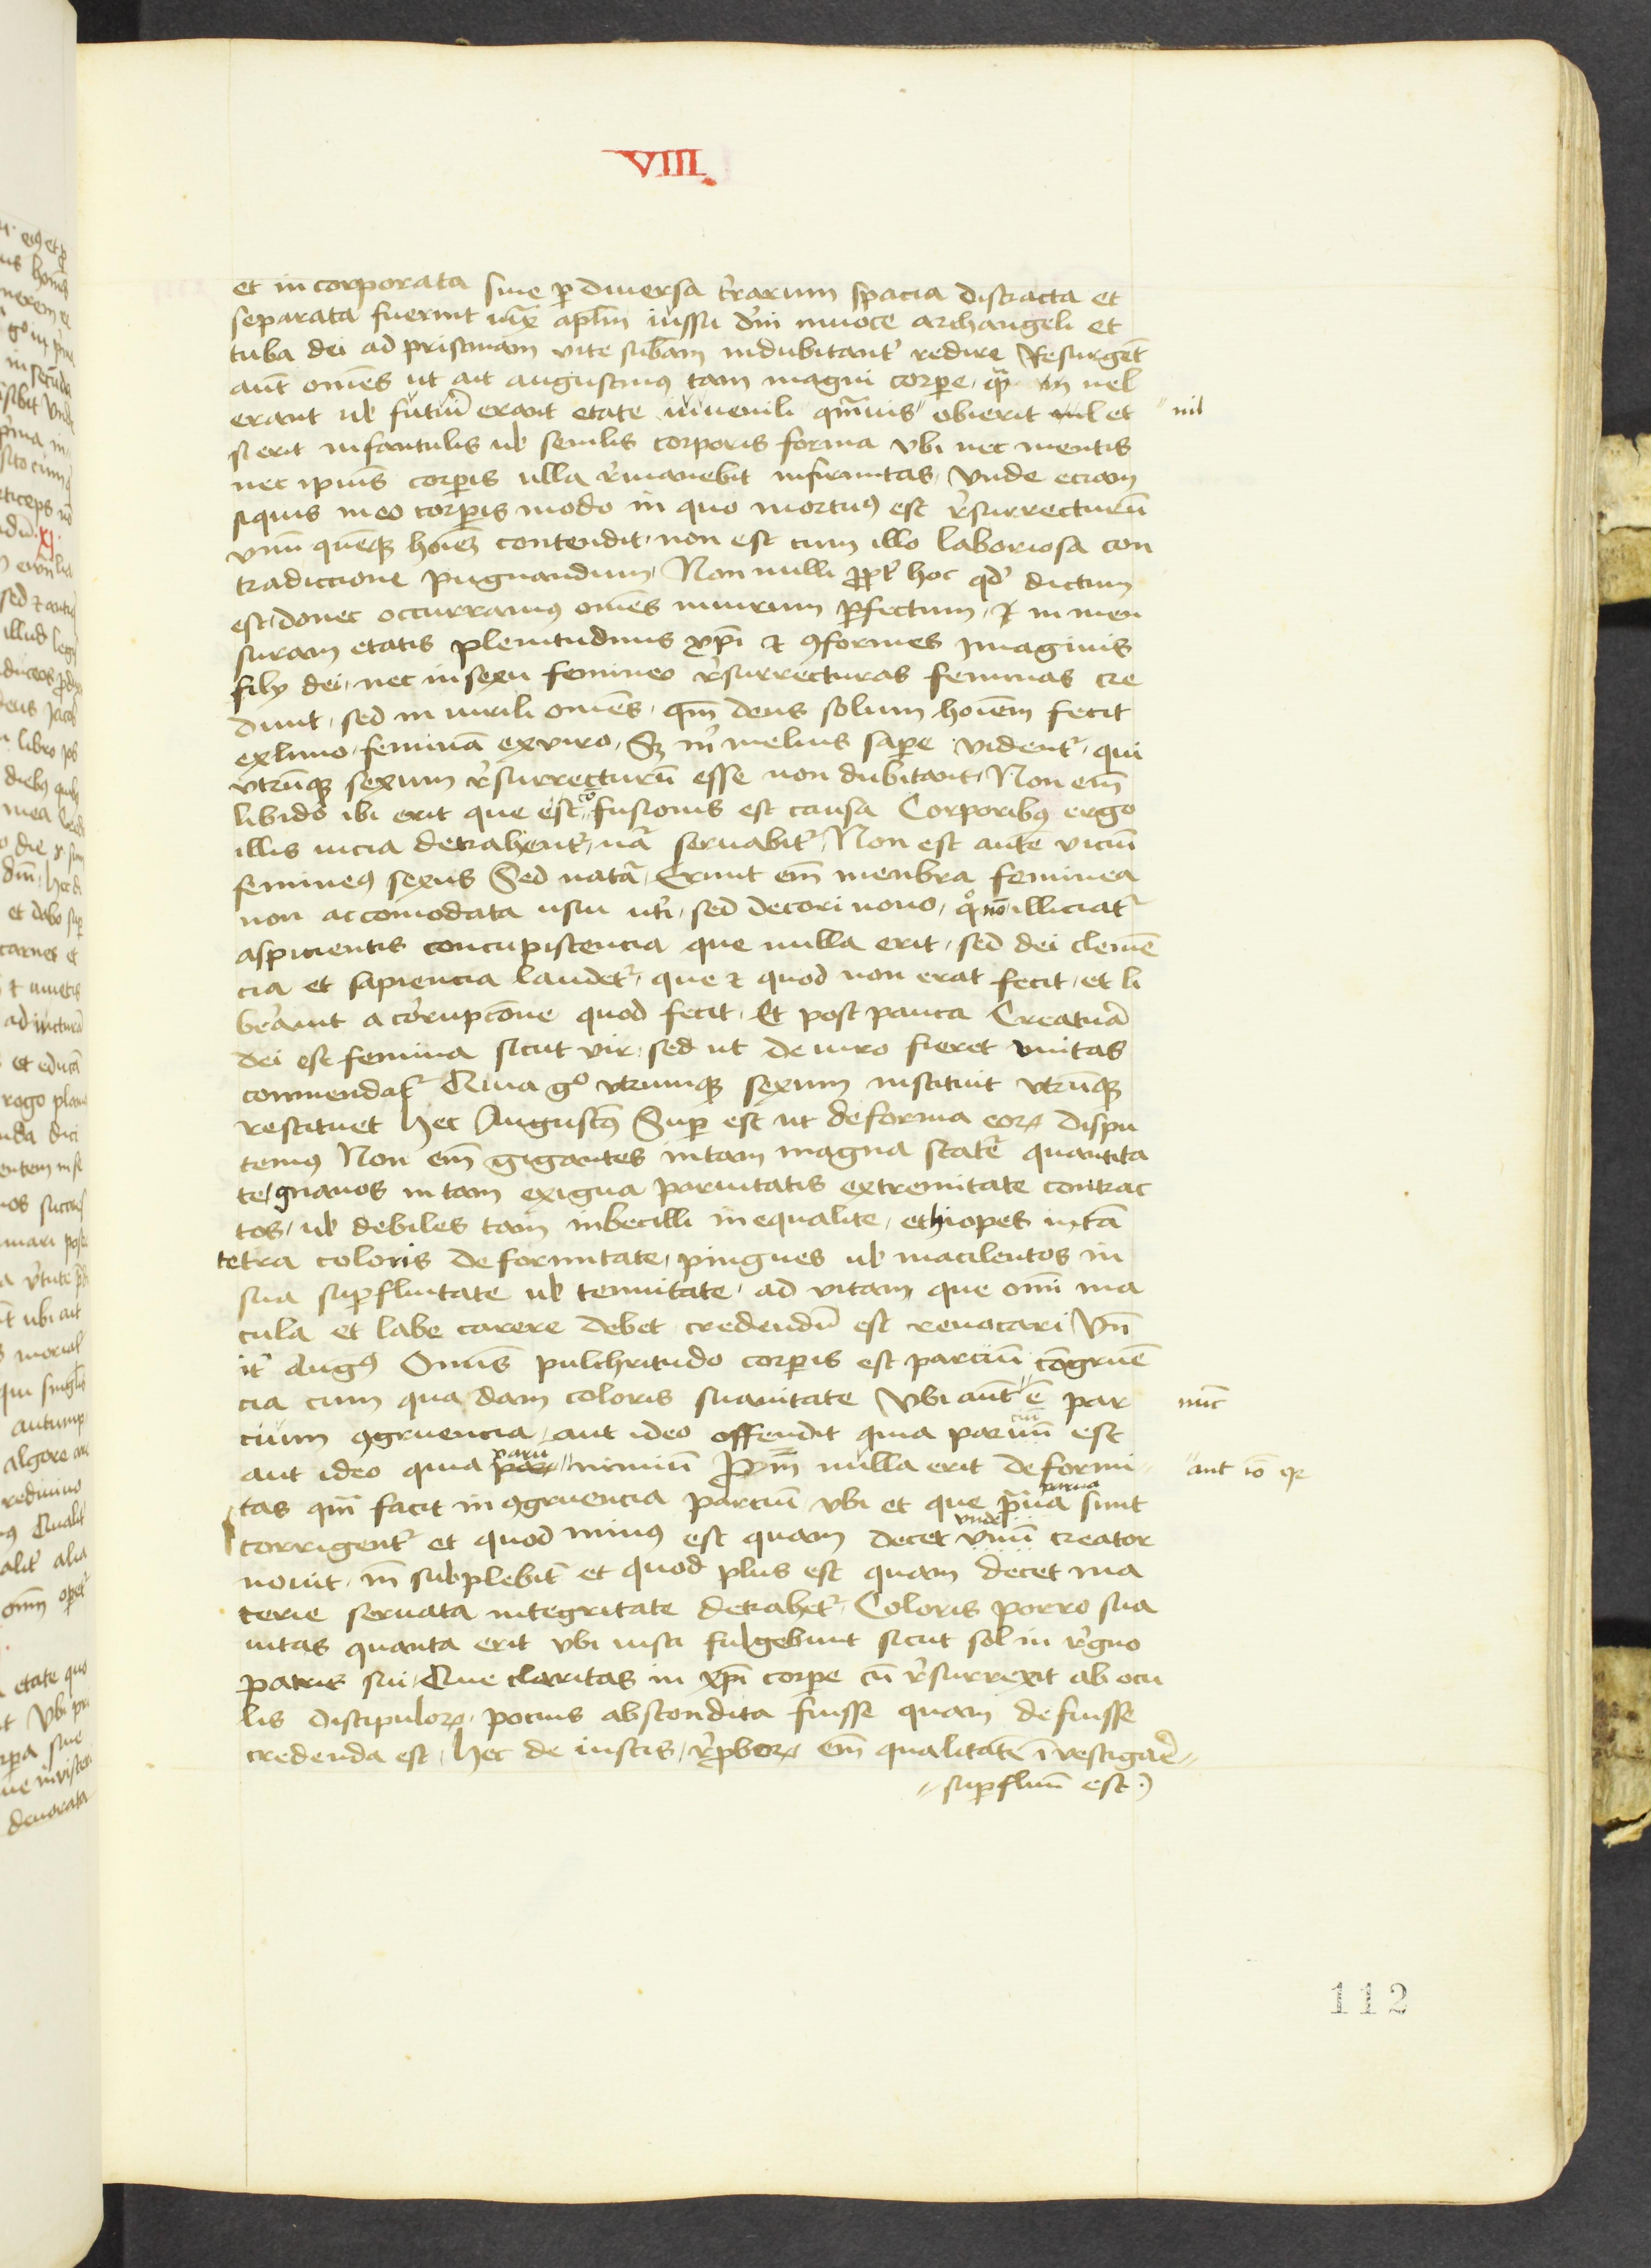 VIII
et in corporata siue ꝑ diuersa t̕rarum spacia distracta et
separata fuerint iux̄ aplm̄ iussu dn̄i in uoce archangeli et
tuba dei ad pristinam vite subām indubitant̕ redire Resurgēt
aūt om̄es ut ait augustinꝰ tam magni corꝑe qᷓm uel
erant ul̕ futuri erant etate iuuenili qᷓmuis obierit nil et nil
si erit infantulis ul̕ senilis corporis forma vbi nec mentis
nec ipiuˢ corꝑis ulla r̕manebit infirmitas Vnde eciam
siquis in eo corꝑis modo in quo mortuꝰ est r̕surrecturū
vnū quēqꝫ hoīeꝫ contendit non est cum illo laboriosa con
tradiccione pugnandum Non nulli ꝓpt̕ hoc qd̕ dictum
est donec occurramꝰ om̄es in uirum ꝑfectum ⁊ in men
suram etatis plenitudinis xp̄i ⁊ ꝯformes ymaginis
filij dei nec in sexu femineo r̕surrecturas feminas cre
dunt sed in uirili om̄es qm̄ deus solum hoīem fecit
ex limo feminā ex viro Sꝫ m̕ melius saꝑe vident̕ qui
vtrūqꝫ sexum r̕surrecturū esse non dubitant Non em̄
libido ibi erit que est cōfusionis est causa Corporibꝰ ergo
illis uicia detrahent̕ nat̕a seruabit̕ Non est autē viciū
femineꝰ sexus Sed natā Erunt em̄ menbra feminea
non accomodata usui ut̕i sed decori nouo qͦ nō illiciat̕
aspicientis concupiscencia que nulla erit sed dei clemē
cia et sapiencia laudet̕ que ⁊ quod non erat fecit et li
berauit a corrupcōne quod fecit Et post pauca Creatuā
dei est femina sicut vir sed ut de uiro fieret vnitas
commendat̕ Qui a gͦ vtrumqꝫ sexum instituit vtrūqꝫ
restituet hec Augustꝰ Suꝑ est ut de forma eoꝝ dispu
temꝰ Non em̄ gigantes in tam magna statē quantita
te gnanos in tam exigua paruitatis extremitate contrac
tos ul̕ debiles tam inbecilli inequalite ethiopes in tā
tetra coloris deformitate pingues ul̕ macilentos in
sua suꝑfluitate ul̕ tenuitate ad vitam que om̄i ma
cula et labe carere debet credendū est reuocari Vn̄
it̕ Augꝰ Omnis pulchritudo corꝑis est parciū congruē
cia cum quadam coloris suauitate Vbi aūt ē par nūc
cium ꝯgruencia aut ideo offendit quia paruū est
aut ideo quia paru nimiū Porro nulla erit deformi aut iō qꝛ
tas qm̄ facit in ꝯgruencia parciū vbi et que praua parua sunt
corrigent̕ et quod minꝰ est quam decet vnū vnde creator
nouit in̄ subplebit̕ et quod plus est quam decet ma
terie seruata integritate detrahet̕ Coloris porro sua
uitas quanta erit vbi iusti fulgebunt sicut sol in r̕gno
patris sui Que claritas in xp̄i corꝑe cū r̕surrexit ab ocu
lis discipuloꝝ pocius abscondita fuisse quam defuisse
credenda est hec de iustis r̕ꝓboꝝ em̄ qualitatē īvestigar̄
suꝑfluū est
112